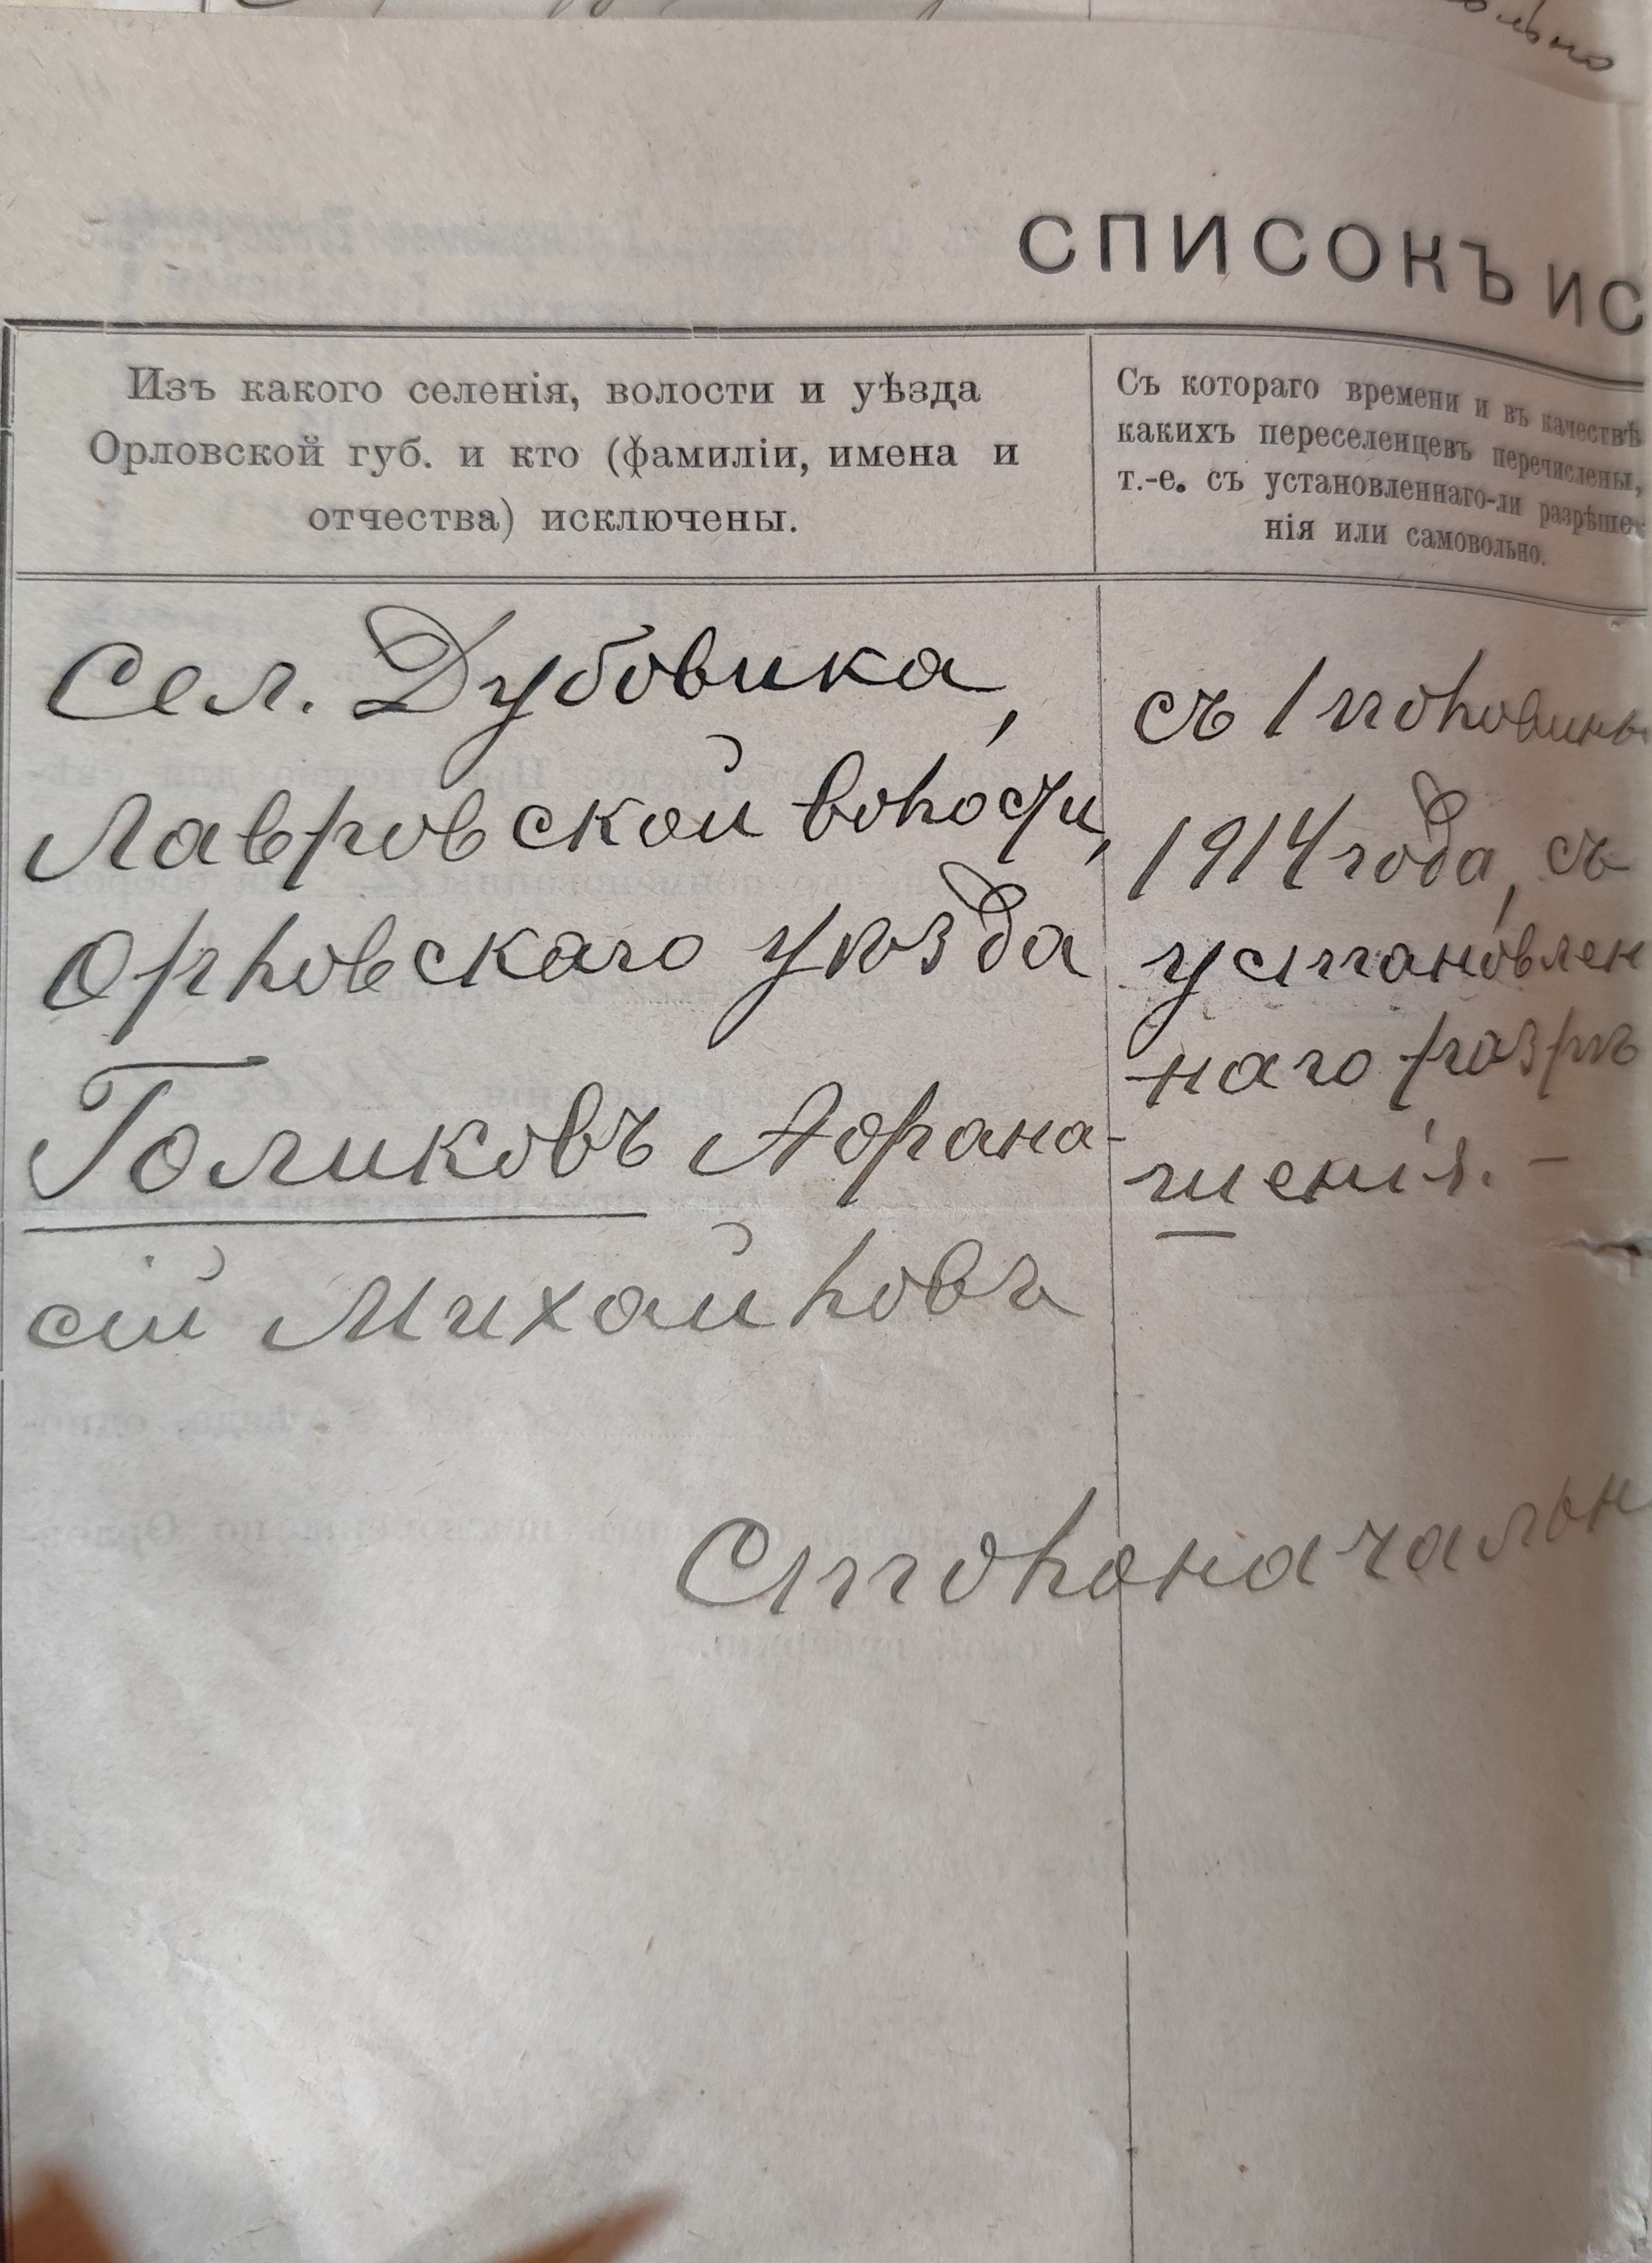 СПИСОКЪ ИС
Изъ какого селенія, волости и уѣзда
Орловской губ. и кто (фамиліи, имена и
отчества) исключены.
Съ котораго времени и въ качествѣ
какихъ переселенцевъ перечислены,
т.-е. съ установленнаго-ли разрѣше-
нія или самовольно.
Сел. Дубовика,
Лавровской волости,
Орловскаго уѣзда
Голиковъ Афана-
сій Михайловъ
съ 1 половины
1914 года, съ
установлен
наго разрѣ
шенія. —
Столоначальн